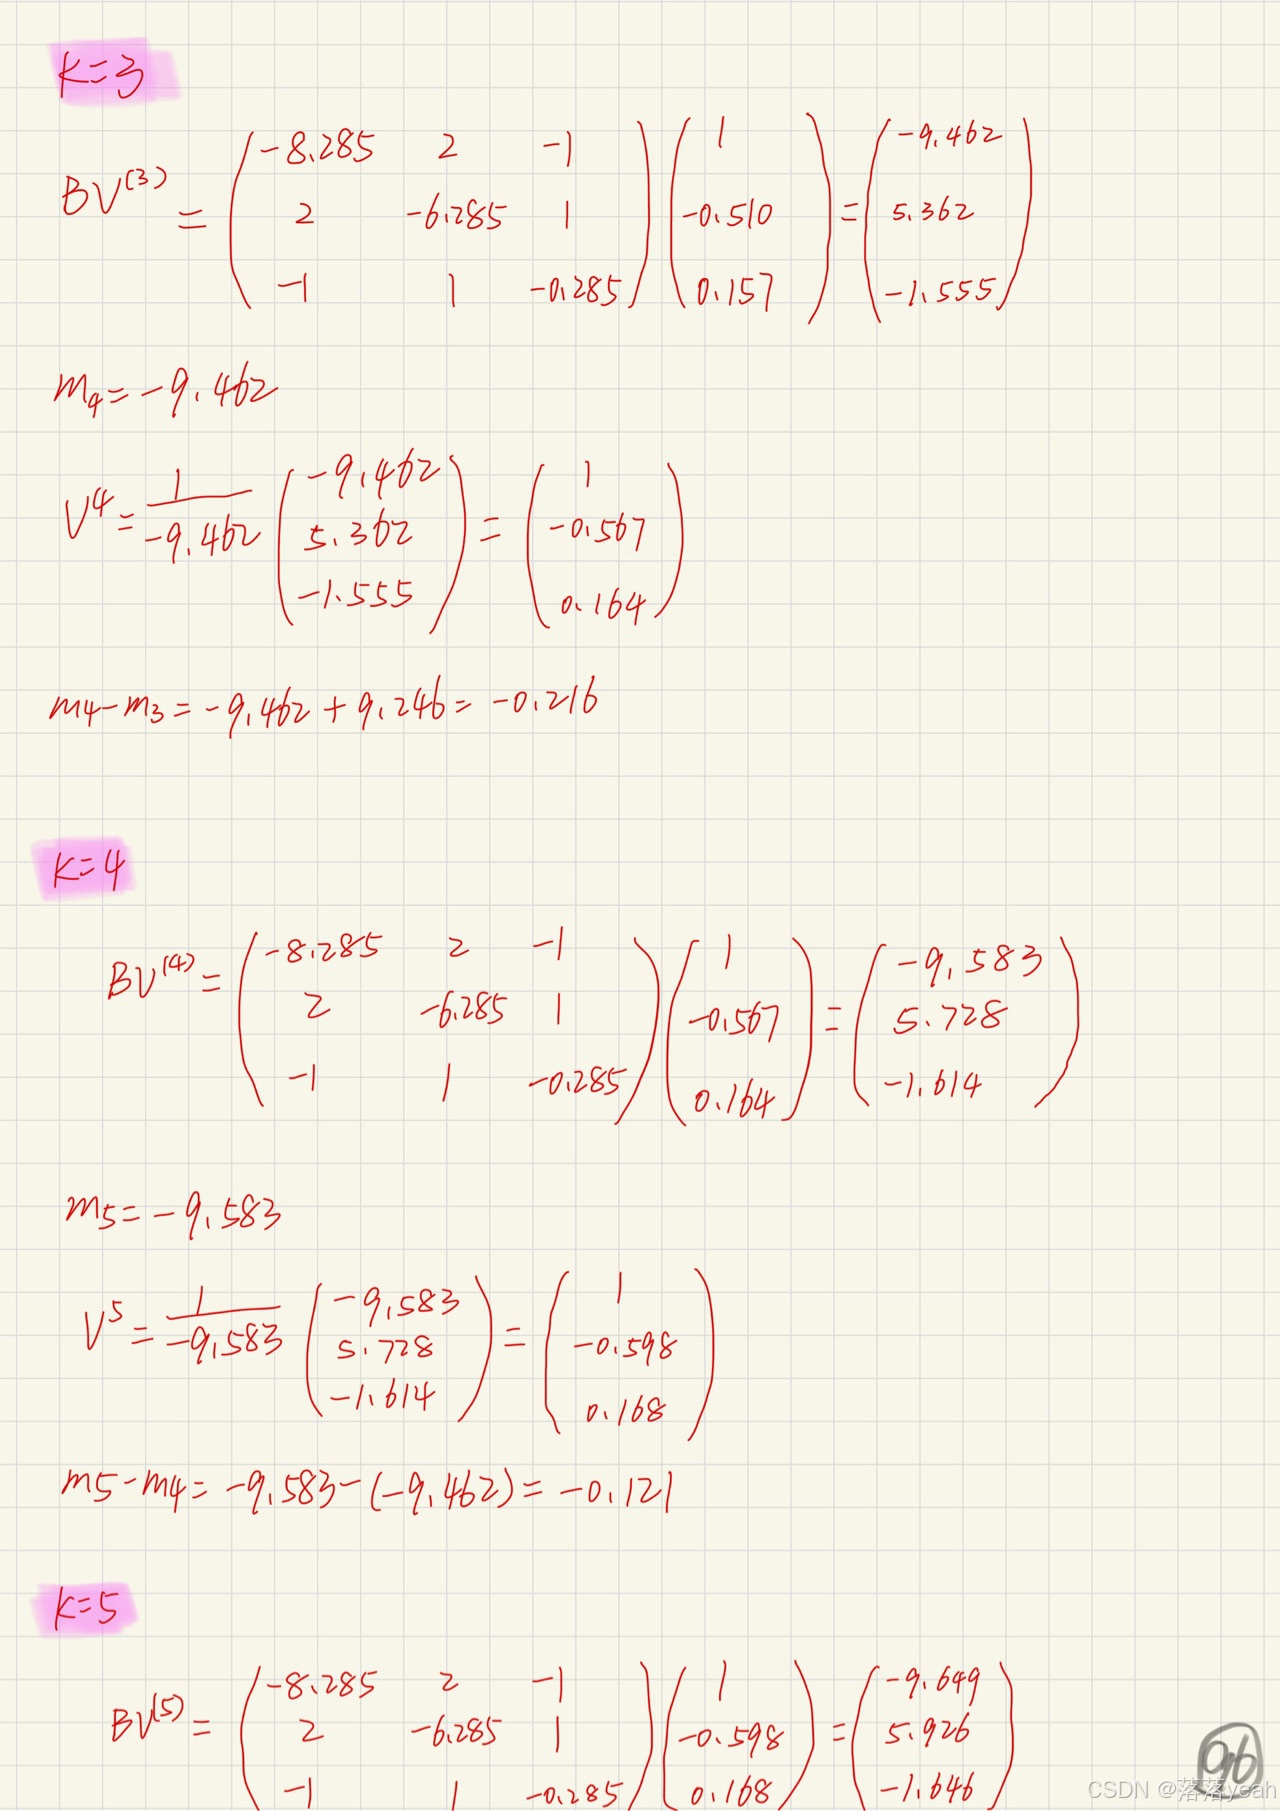 K=3
BV^(3) = (-8.285 2 -1; 2 -6.285 1; -1 1 -0.285) (1; -0.510; 0.157) = (-9.462; 5.362; -1.555)
m₄=-9.462
V⁴ = 1/-9.462 (-9.462; 5.362; -1.555) = (1; -0.567; 0.164)
m4-m3=-9.462+9.246=-0.216
K=4
BV^(4) = (-8.285 2 -1; 2 -6.285 1; -1 1 -0.285) (1; -0.567; 0.164) = (-9.583; 5.728; -1.614)
m5=-9.583
V⁵ = 1/-9.583 (-9.583; 5.728; -1.614) = (1; -0.598; 0.168)
m5-m4=-9.583-(-9.462)=-0.121
K=5
BV^(5) = (-8.285 2 -1; 2 -6.285 1; -1 1 -0.285) (1; -0.598; 0.168) = (-9.649; 5.926; -1.646)
96
CSDN @落落yeah